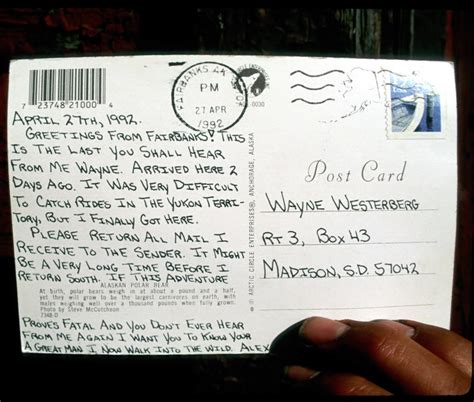 7 23748 21000 4
FAIRBANKS AK
PM
27 APR
1992
0030
April 27th, 1992.
Greetings From Fairbanks! This
Is The Last You Shall Hear
From Me Wayne. Arrived Here 2
Days Ago. It Was Very Difficult
To Catch Rides In The Yukon Terri-
tory. But I Finally Got Here.
Please Return All Mail I
Receive To The Sender. It Might
Be A Very Long Time Before I
Return South. If This Adventure
ALASKAN POLAR BEAR
At birth, polar bears weigh in at about a pound and a half,
yet they will grow to be the largest carnivores on earth, with
males weighing well over a thousand pounds when fully grown.
Photo by Steve McCutcheon
Proves Fatal And You Don't Ever Hear
From Me Again I Want You To Know Your
A Great Man I Now Walk Into The Wild. Alex
© ARCTIC CIRCLE ENTERPRISES, ANCHORAGE, ALASKA
Post Card
Wayne Westerberg
Rt 3, Box 43
Madison, S.D. 57042